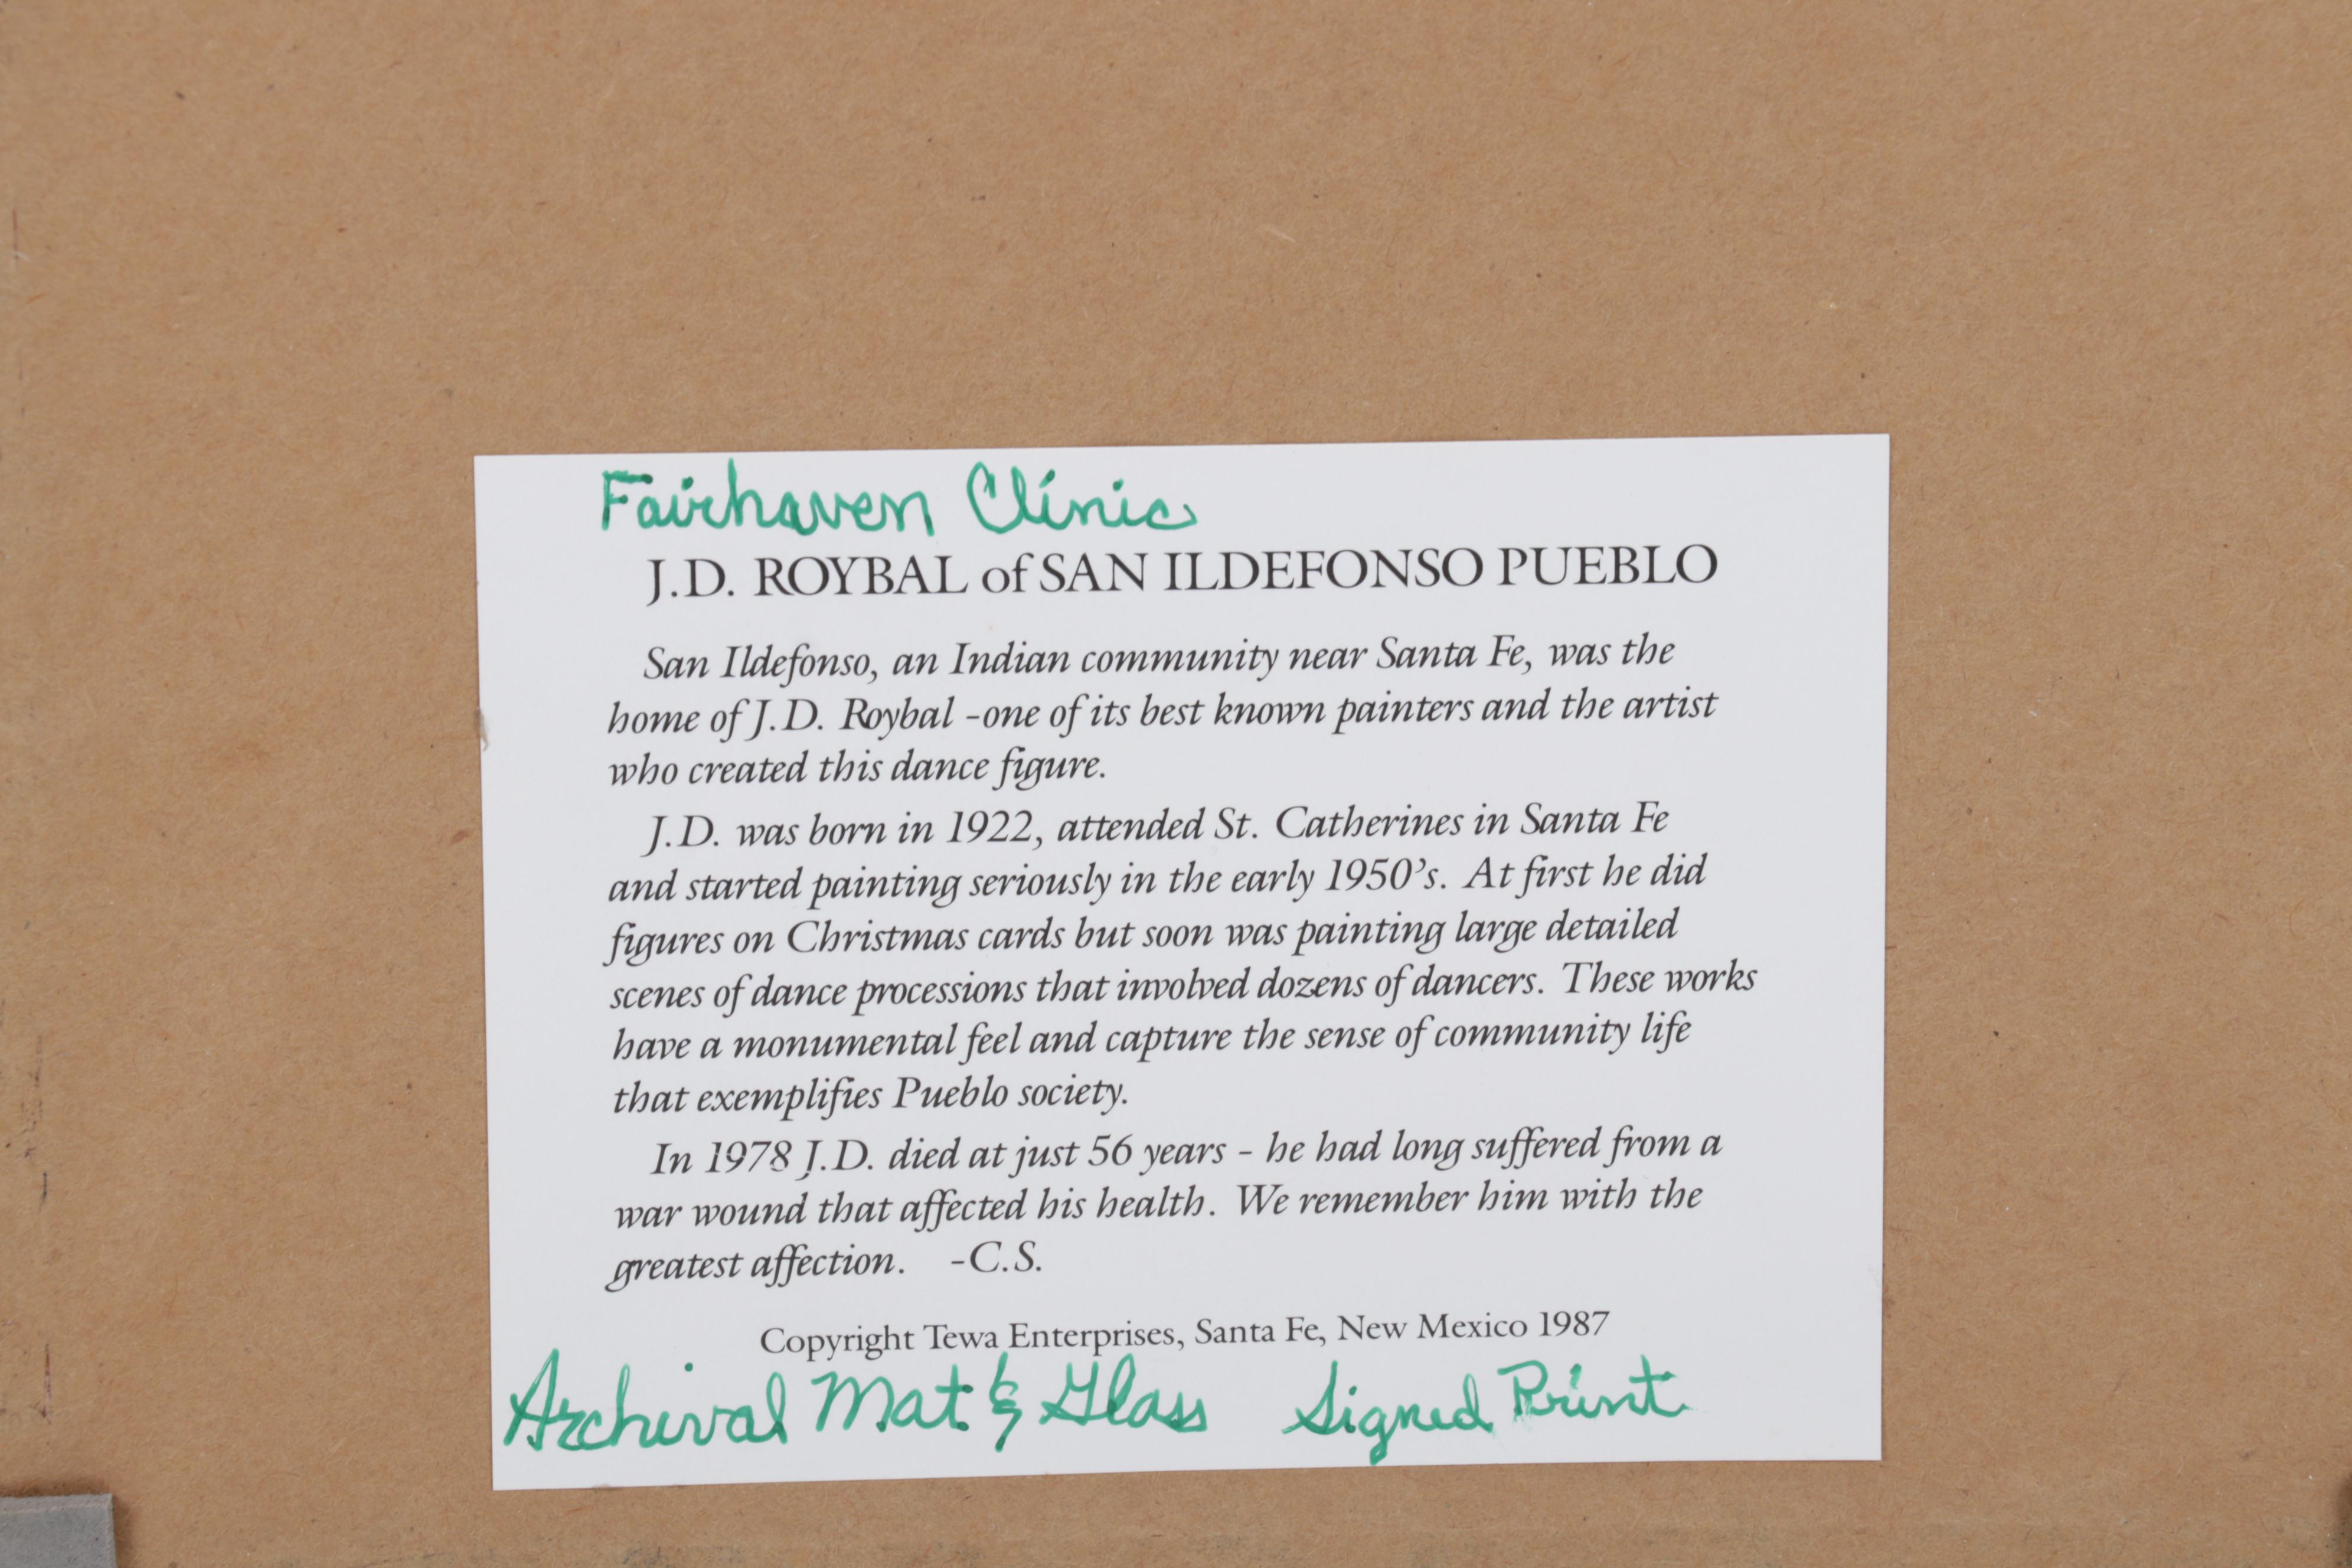 Fairhaven Clinic
J.D. ROYBAL of SAN ILDEFONSO PUEBLO
San Ildefonso, an Indian community near Santa Fe, was the
home of J.D. Roybal -one of its best known painters and the artist
who created this dance figure.
J.D. was born in 1922, attended St. Catherines in Santa Fe
and started painting seriously in the early 1950's. At first he did
figures on Christmas cards but soon was painting large detailed
scenes of dance processions that involved dozens of dancers. These works
have a monumental feel and capture the sense of community life
that exemplifies Pueblo society.
In 1978 J.D. died at just 56 years - he had long suffered from a
war wound that affected his health. We remember him with the
greatest affection. -C.S.
Copyright Tewa Enterprises, Santa Fe, New Mexico 1987
Archival Mat & Glass Signed Print